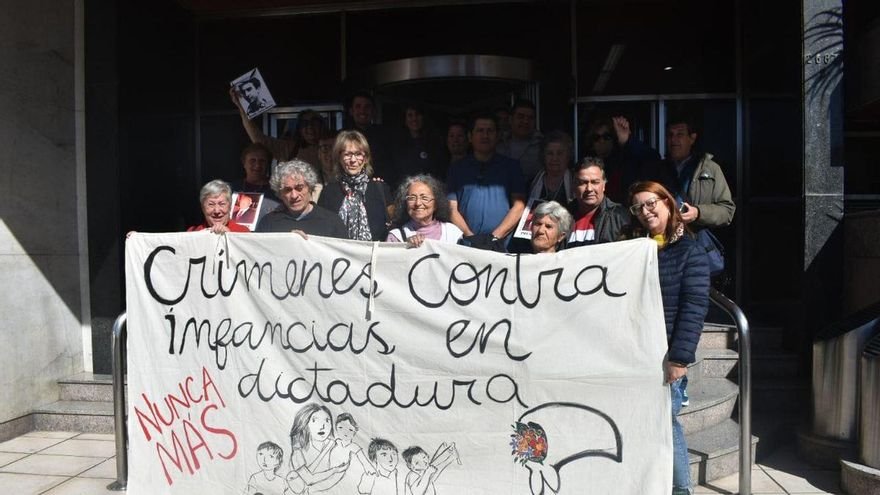 2667
Crímenes Contra
infancias en
dictadura
NUNCA
MÁS